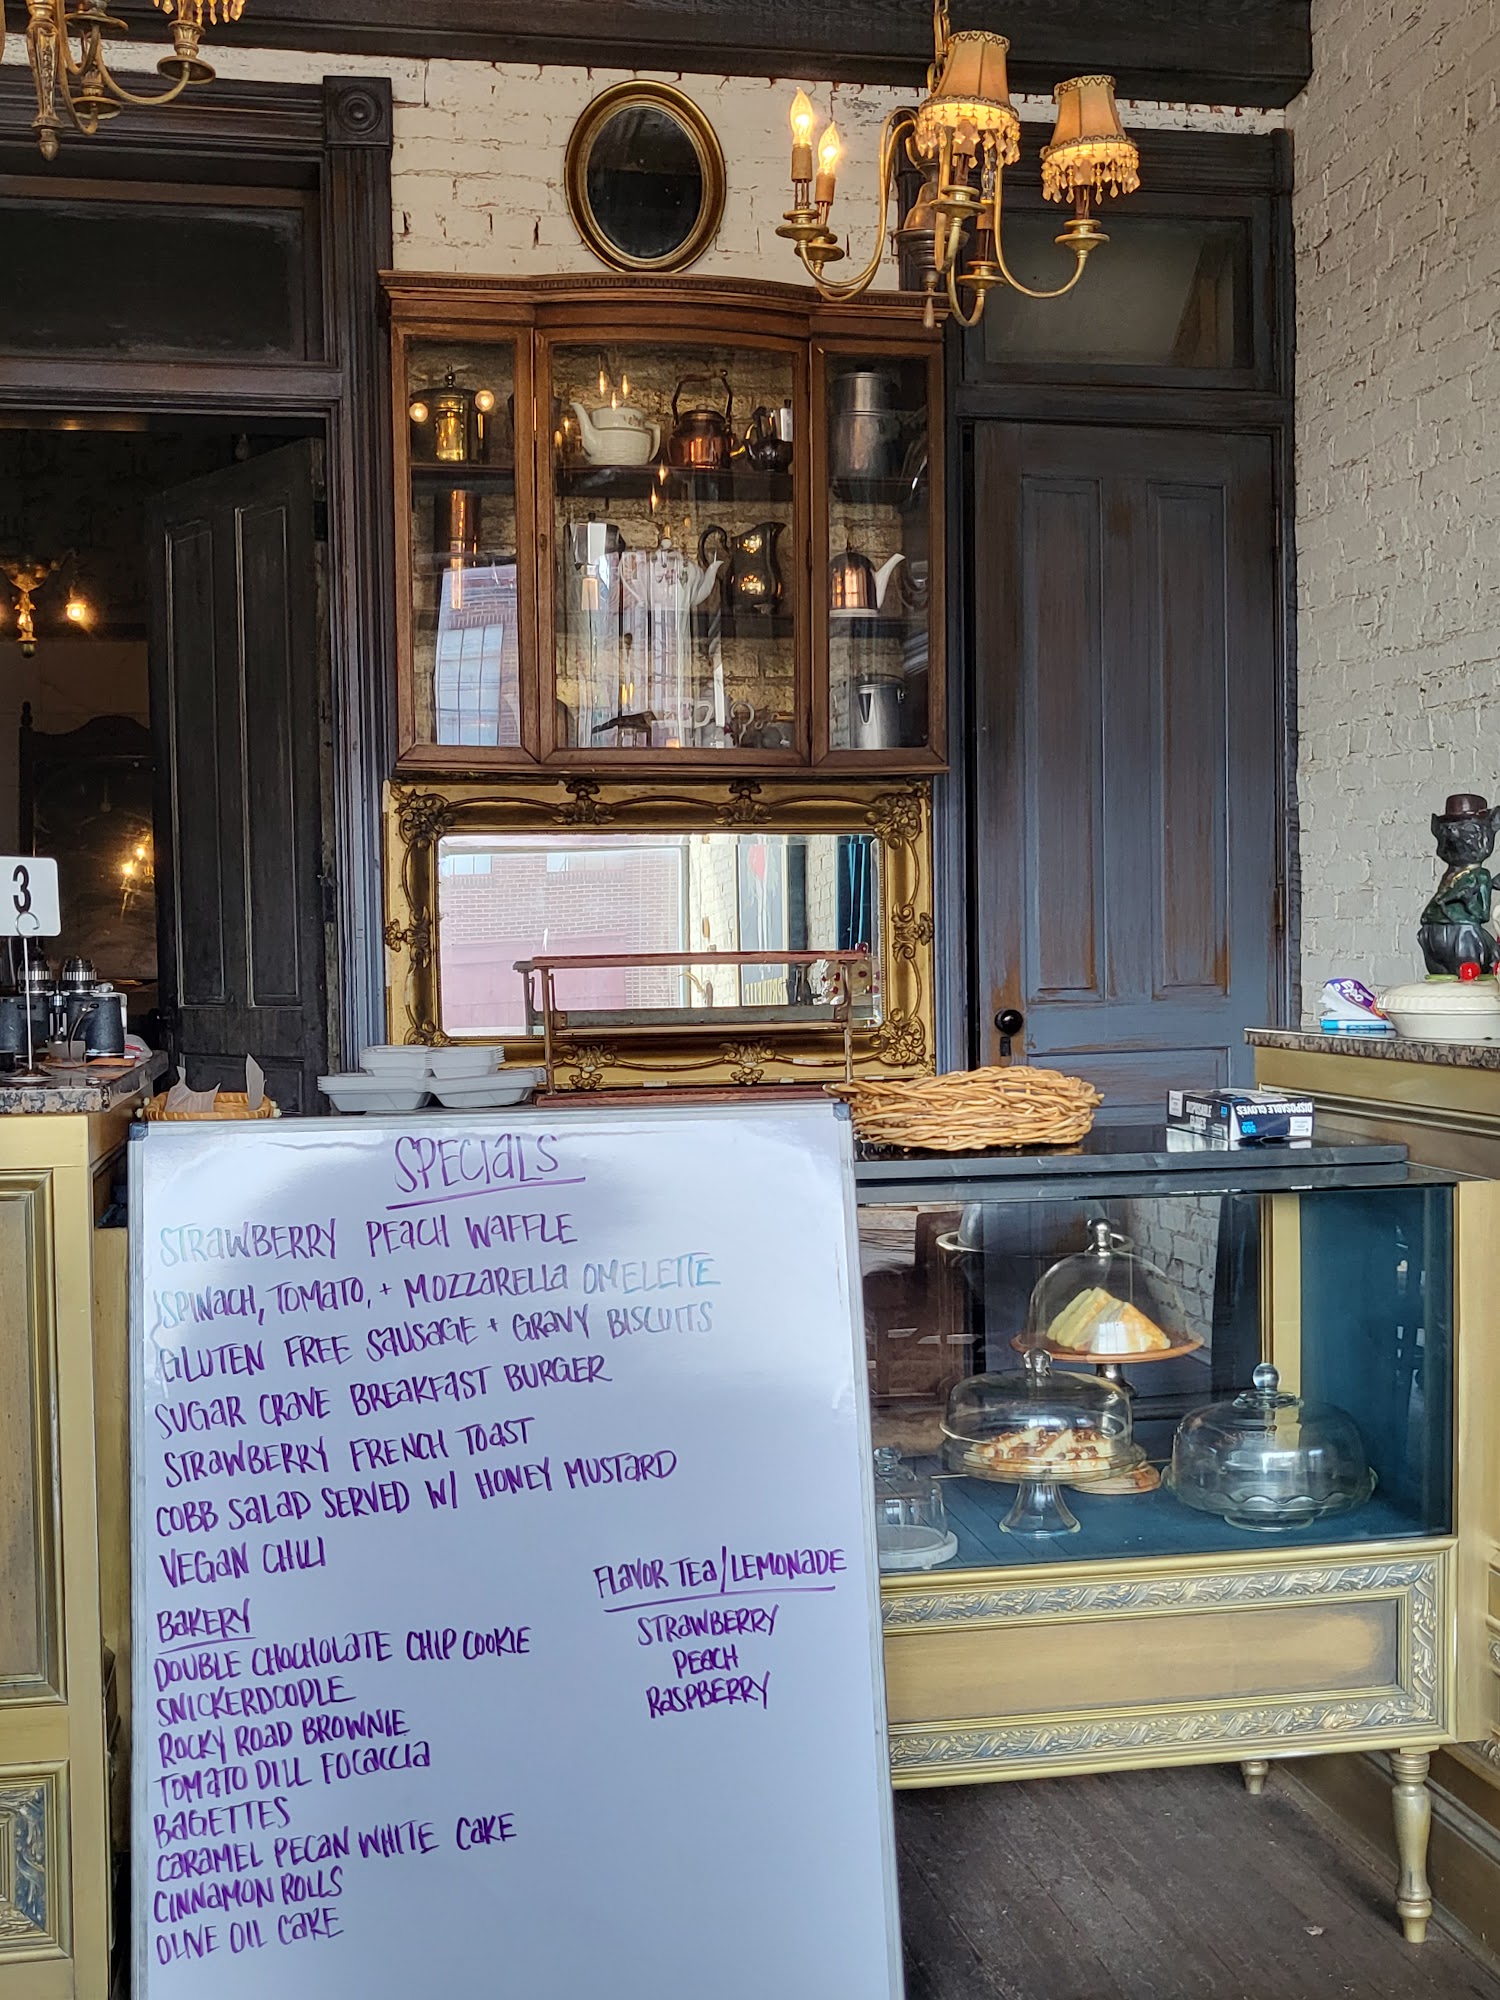 3
DISPOSABLE GLOVES
500
SPECIALS
STRAWBERRY PEACH WAFFLE
SPINACH, TOMATO, + MOZZARELLA OMELETTE
GLUTEN FREE SAUSAGE + GRAVY BISCUITS
SUGAR CRAVE BREAKFAST BURGER
STRAWBERRY FRENCH TOAST
COBB SALAD SERVED W/ HONEY MUSTARD
VEGAN CHILI
BAKERY
DOUBLE CHOCHOLATE CHIP COOKIE
SNICKERDOODLE
ROCKY ROAD BROWNIE
TOMATO DILL FOCACCIA
BAGETTES
CARAMEL PECAN WHITE CAKE
CINNAMON ROLLS
OLIVE OIL CAKE
FLAVOR TEA/LEMONADE
STRAWBERRY
PEACH
RASPBERRY